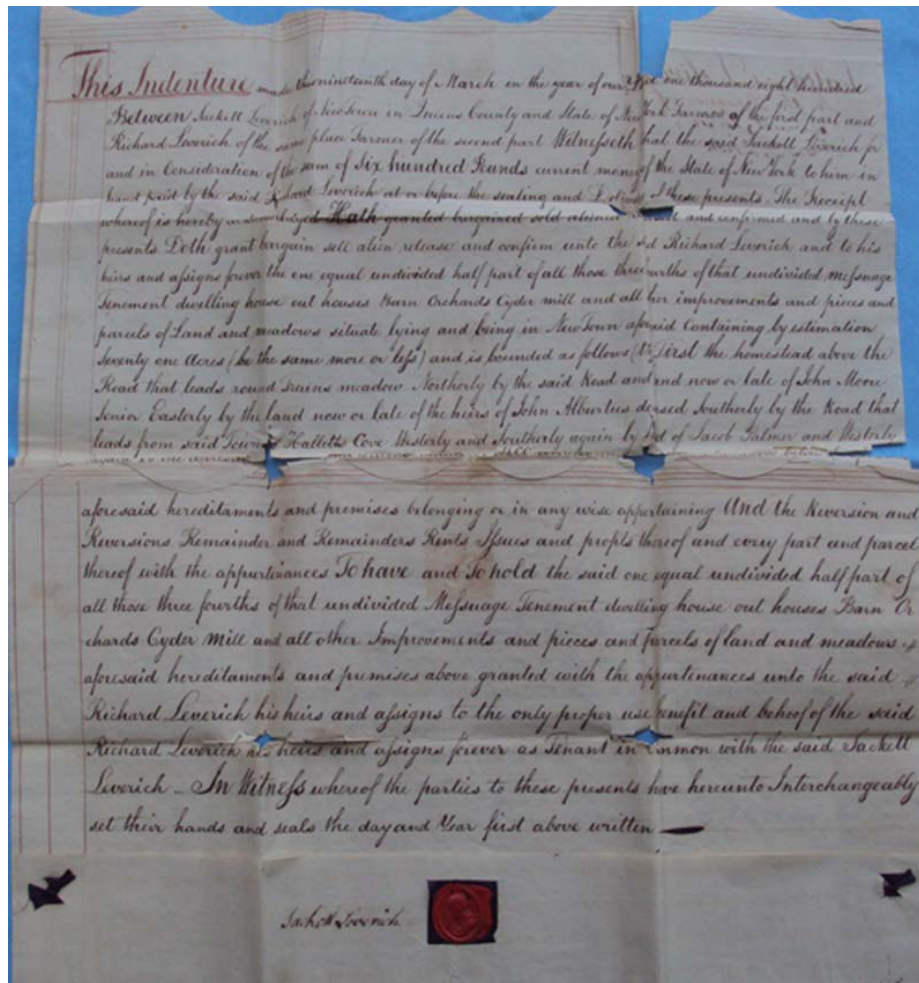 This Indenture made the nineteenth day of March in the year of our one thousand eight hundred
Between Sackett Leverich of New Town in Queens County and State of New York Farmer of the first part and
Richard Leverich of the same place Farmer of the second part Witnesseth that the said Sackett Leverich
and in Consideration of the sum of Six hundred Pounds current money of the State of New York to him in
hand paid by the said Richard Leverich at or before the sealing and of these presents. The Receipt
whereof is hereby Hath granted bargained sold aliened and confirmed and by these
presents Doth grant bargain sell alien release and confirm unto the Richard Leverich and to his
heirs and assigns forever the one equal undivided half part of all those three fourths of that undivided Messuage
Tenement dwelling house out houses Barn Orchards Cyder mill and all improvements and pieces and
parcels of Land and meadows situate lying and being in New Town Containing by estimation
Seventy one Acres (be the same more or less) and is bounded as follows First the homestead above the
Road that leads round meadow Northerly by the said Road and now or late of John Moore
Senior Easterly by the land now or late of the heirs of John Alburtus Southerly by the Road that
leads from said Town Halletts Cove Westerly and Southerly again by of Jacob Palmer and Westerly
aforesaid hereditaments and premises belonging or in any wise appertaining And the Reversion and
Reversions Remainder and Remainders Rents Issues and profits thereof and every part and parcel
thereof with the appurtenances To have and To hold the said one equal undivided half part of
all those three fourths of that undivided Messuage Tenement dwelling house out houses Barn Or
chards Cyder Mill and all other Improvements and pieces and parcels of land and meadows
aforesaid hereditaments and premises above granted with the appurtenances unto the said
Richard Leverich his heirs and assigns to the only proper use benefit and behoof of the said
Richard Leverich his heirs and assigns forever as Tenant in common with the said Sackett
Leverich – In Witness whereof the parties to these presents have hereunto Interchangeably
set their hands and seals the day and Year first above written
Sackett Leverich